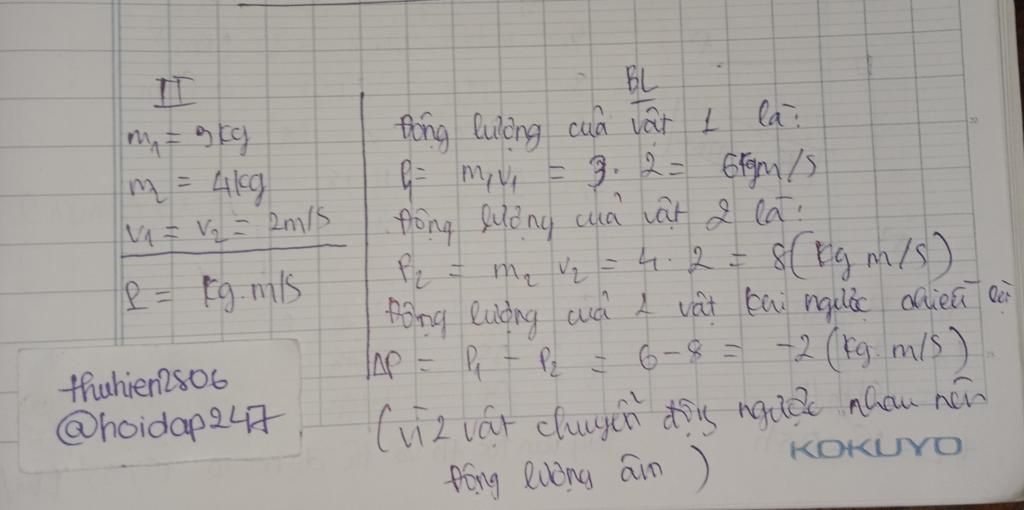 II
m₁ = 3kg
m = 4kg
v₁ = v₂ = 2m/s
P = kg.m/s
BL
Động lượng cuả vật 1 là:
P₁= m₁v₁ = 3. 2 = 6kgm/s
Động lượng cuả vật 2 là:
P₂ = m₂ v₂ = 4. 2 = 8(kg m/s)
Động lượng cuả 2 vật khi ngược chiều là
ΔP = P₁ - P₂ = 6-8 = -2 (kg.m/s)
(vì 2 vật chuyển động ngược nhau nên
Động lượng âm)
thuhien2806
@hoidap247
KOKUYO